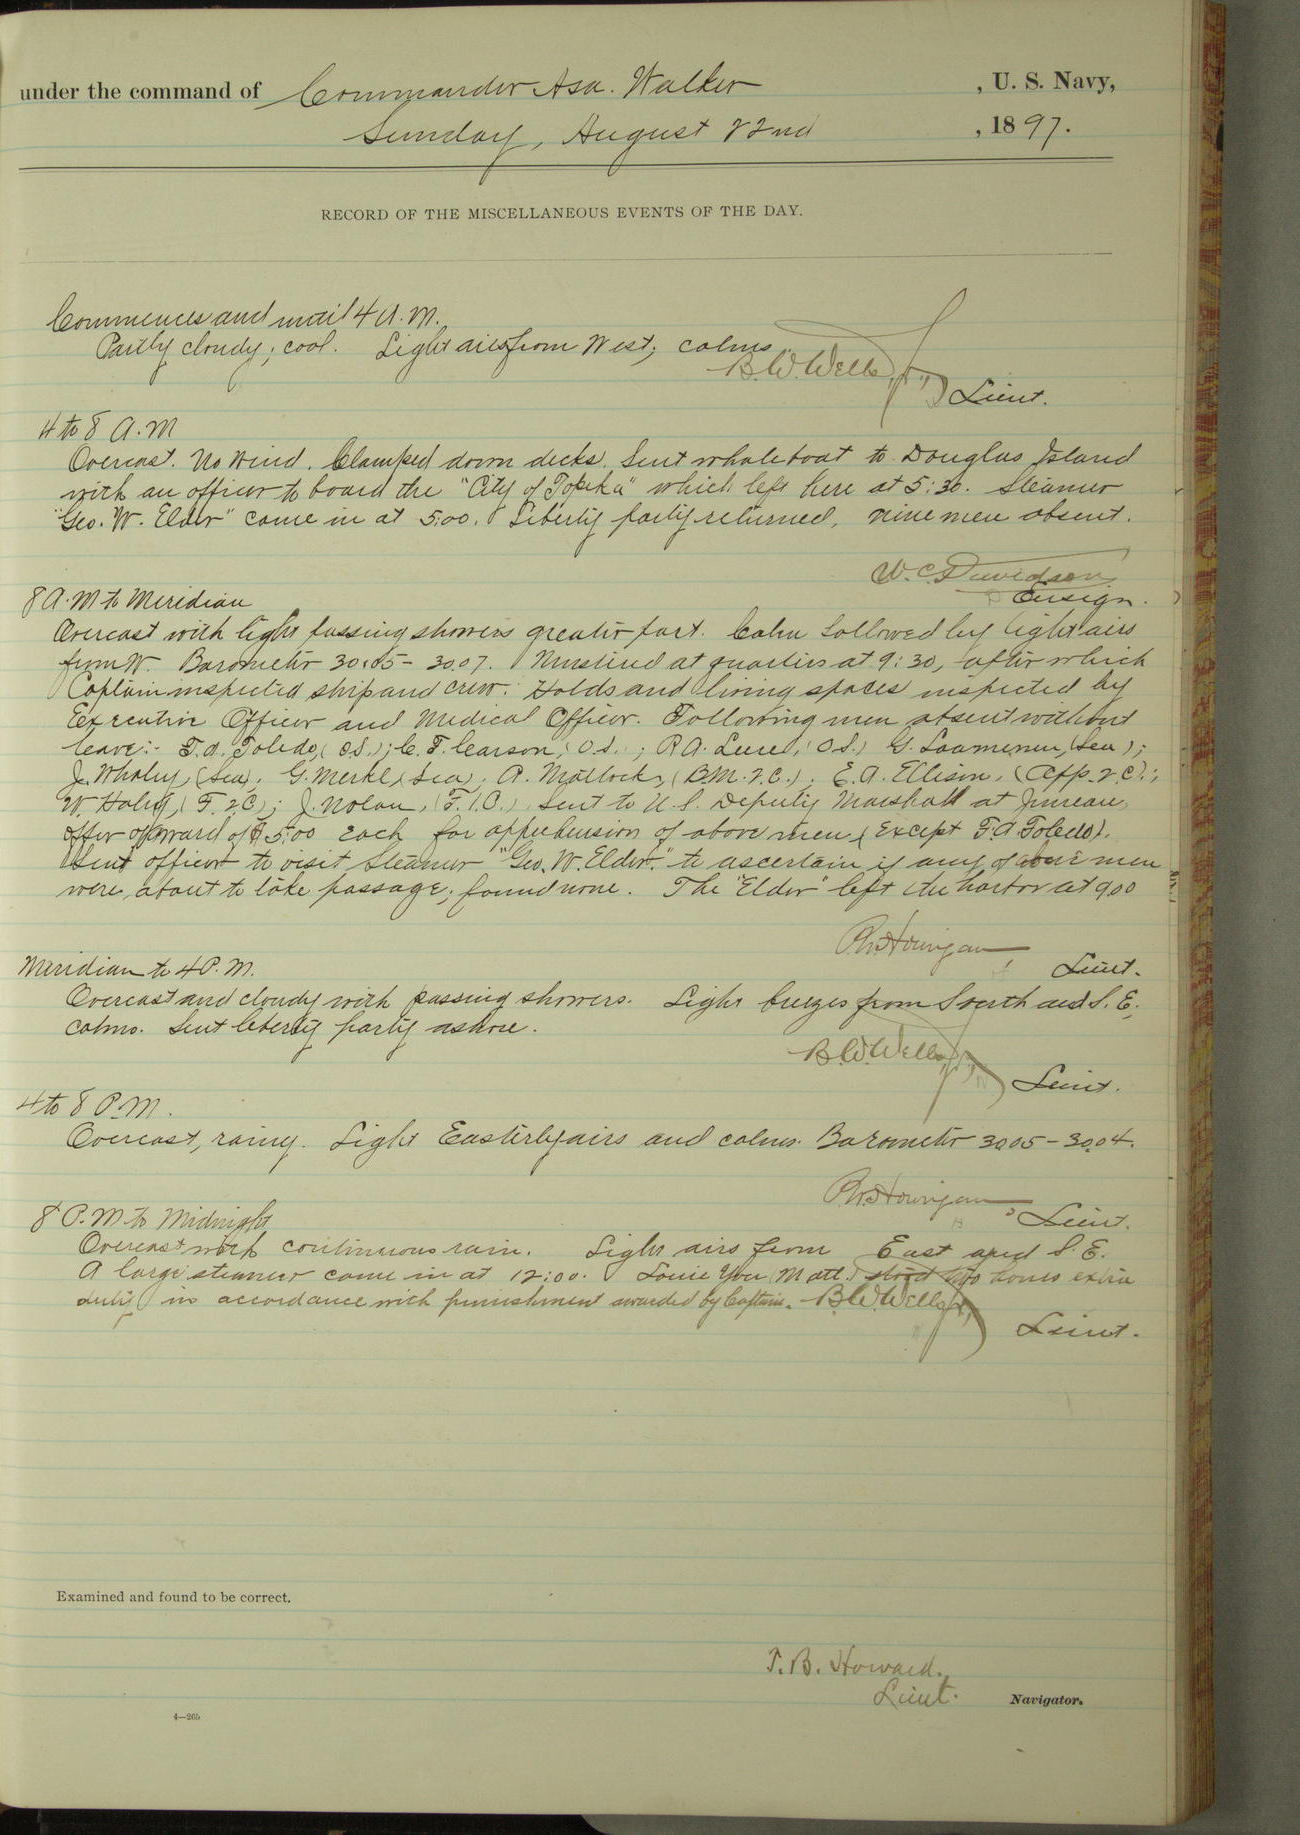 under the command of Commander Asa. Walker , U. S. Navy,
Sunday, August 22nd , 1897.
RECORD OF THE MISCELLANEOUS EVENTS OF THE DAY.
Commences and until 4 A.M.
Partly cloudy; cool. Light airs from West; calms.
B.W. Wells, Jr., Lieut.
4 to 8 A.M
Overcast. No wind. Clamped down decks. Sent whaleboat to Douglas Island
with an officer to board the "City of Topeka" which left here at 5:30. Steamer
"Geo. W. Elder" came in at 5:00. Liberty party returned, nine men absent.
W.C. Davidson
Ensign.
8 A.M to Meridian
Overcast with light passing showers greater part. Calm followed by light airs
from W. Barometer 30.05 - 30.07. Mustered at quarters at 9:30, after which
Captain inspected ship and crew. Holds and living spaces inspected by
Executive Officer and Medical Officer. Following men absent without
leave:- F.A. Toledo, (O.S.); C. F. Carson, (O.S.); R.A. Luce, (O.S.) G. (Sea);
J. Whaley, (Sea), G. Merkl, (Sea), A. Mattocks, (B.M. 2.C.), E.A. Ellison, (App. 2.C);
W. Haley, (F. 2C); J. Nolan, (F.1.C.) Sent to U.S. Deputy Marshall at Juneau,
offer of reward of $5.00 each for apprehension of above men (except F.A. Toledo).
Sent officer to visit Steamer "Geo. W. Elder." to ascertain if any of above men
were about to take passage; found none. The "Elder" left the harbor at 9.00
Hourigan, Lieut.
Meridian to 4 P.M.
Overcast and cloudy with passing showers. Light breezes from South and S.E.;
calms. Sent liberty party ashore.
B.W. Wells, Jr., Lieut.
4 to 8 P.M.
Overcast, rainy. Light Easterly airs and calms. Barometer 30.05 - 30.04.
Hourigan, Lieut.
8 P.M to Midnight
Overcast with continuous rain. Light airs from East and S.E.
A large steamer came in at 12:00. Louie You (M att.) stood two hours extra
duty in accordance with punishment awarded by Captain. B.W. Wells, Jr.,
Lieut.
Examined and found to be correct.
T.B. Howard.
Lieut. Navigator.
4—265